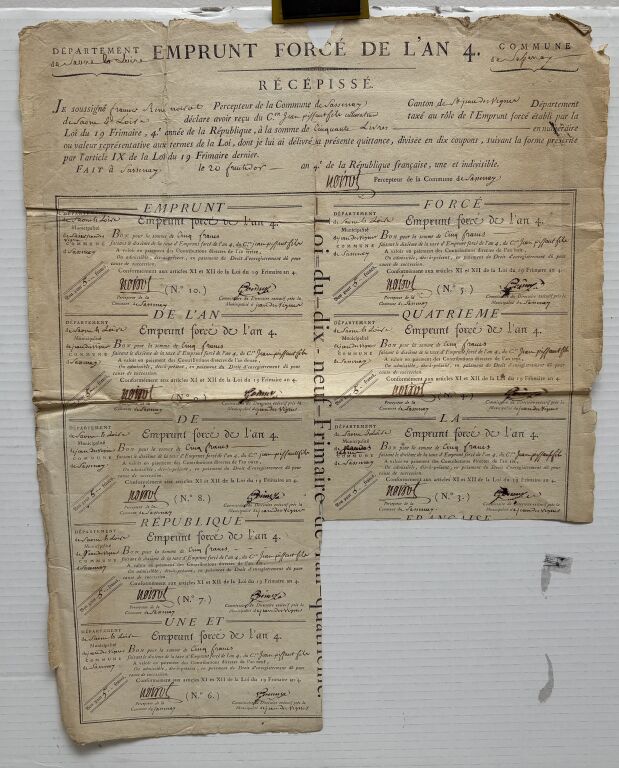 DÉPARTEMENT EMPRUNT FORCÉ DE L'AN 4. COMMUNE
de Saone et Loire de Sassenay
RÉCÉPISSÉ.
JE soussigné Percepteur de la Commune de Sassenay Canton de St jean des Vignes Département
de Saone et Loire déclare avoir reçu du C.en Jean pissant fils taxé au rôle de l'Emprunt forcé établi par la
Loi du 19 Frimaire, 4.e année de la République, à la somme de Cinquante Livres en numéraire
ou valeur représentative aux termes de la Loi, dont je lui ai délivré la présente quittance, divisée en dix coupons, suivant la forme prescrite
par l'article IX de la Loi du 19 Frimaire dernier.
FAIT à Sassenay le 20 fructidor an 4.e de la République française, une et indivisible.
noirot Percepteur de la Commune de Sassenay
EMPRUNT
DÉPARTEMENT
de Saone et Loire
Municipalité
COMMUNE
de Sassenay
Emprunt forcé de l'an 4.
BON pour la somme de Cinq francs
faisant le dixième de la taxe d'Emprunt forcé de l'an 4, du C.en Jean pissant fils
A valoir en paiement des Contributions directes de l'an
On admissible, dès-à-présent, en paiement de Droit d'enregistrement dû pour
cause de succession.
Conformément aux articles XI et XII de la Loi du 19 Frimaire an 4.
Bon pour 5 francs
noirot (N.o 10.)
Percepteur de la Commissaire du Directoire exécutif près la
Commune de Sassenay Municipalité de st jean des Vignes
FORCÉ
DÉPARTEMENT
de Saone et Loire
Municipalité
de st jean des Vignes
COMMUNE
de Sassenay
Emprunt forcé de l'an 4.
BON pour la somme de Cinq francs
faisant le dixième de la taxe d'Emprunt forcé de l'an 4, du C.en Jean pissant fils
A valoir en paiement des Contributions directes de l'an
On admissible, dès-à-présent, en paiement de Droit d'enregistrement dû pour
cause de succession.
Conformément aux articles XI et XII de la Loi du 19 Frimaire an 4.
Bon pour 5 francs
noirot (N.o 5.)
Percepteur de la Commissaire du Directoire exécutif près la
Commune de Sassenay Municipalité de st jean des Vignes
DE L'AN
DÉPARTEMENT
de Saone et Loire
Municipalité
de st jean des Vignes
COMMUNE
de Sassenay
Emprunt forcé de l'an 4.
BON pour la somme de Cinq francs
faisant le dixième de la taxe d'Emprunt forcé de l'an 4, du C.en Jean pissant fils
A valoir en paiement des Contributions directes de l'an
On admissible, dès-à-présent, en paiement de Droit d'enregistrement dû pour
cause de succession.
Conformément aux articles XI et XII de la Loi du 19 Frimaire an 4.
Bon pour 5 francs
noirot
Percepteur de la Commissaire du Directoire exécutif près la
Commune de Sassenay Municipalité de st jean des Vignes
QUATRIEME
DÉPARTEMENT
de Saone et Loire
Municipalité
de st jean des Vignes
COMMUNE
de Sassenay
Emprunt forcé de l'an 4.
BON pour la somme de Cinq francs
faisant le dixième de la taxe d'Emprunt forcé de l'an 4, du C.en Jean pissant fils
A valoir en paiement des Contributions directes de l'an
On admissible, dès-à-présent, en paiement de Droit d'enregistrement dû pour
cause de succession.
Conformément aux articles XI et XII de la Loi du 19 Frimaire an 4.
Bon pour 5 francs
noirot
Percepteur de la Commissaire du Directoire exécutif près la
Commune de Sassenay Municipalité de st jean des Vignes
DE
DÉPARTEMENT
de Saone et Loire
Municipalité
de st jean des Vignes
COMMUNE
de Sassenay
Emprunt forcé de l'an 4.
BON pour la somme de Cinq francs
faisant le dixième de la taxe d'Emprunt forcé de l'an 4, du C.en Jean pissant fils
A valoir en paiement des Contributions directes de l'an
On admissible, dès-à-présent, en paiement de Droit d'enregistrement dû pour
cause de succession.
Conformément aux articles XI et XII de la Loi du 19 Frimaire an 4.
Bon pour 5 francs
noirot (N.o 8.)
Percepteur de la Commissaire du Directoire exécutif près la
Commune de Sassenay Municipalité de st jean des Vignes
LA
DÉPARTEMENT
de Saone et Loire
Municipalité
COMMUNE
de Sassenay
Emprunt forcé de l'an 4.
BON pour la somme de Cinq francs
faisant le dixième de la taxe d'Emprunt forcé de l'an 4, du C.en Jean pissant fils
A valoir en paiement des Contributions directes de l'an
On admissible, dès-à-présent, en paiement de Droit d'enregistrement dû pour
cause de succession.
Conformément aux articles XI et XII de la Loi du 19 Frimaire an 4.
Bon pour 5 francs
noirot (N.o 3.)
Percepteur de la Commissaire du Directoire exécutif près la
Commune de Sassenay Municipalité de st jean des Vignes
FRANÇAISE
RÉPUBLIQUE
DÉPARTEMENT
de Saone et Loire
Municipalité
de st jean des Vignes
COMMUNE
de Sassenay
Emprunt forcé de l'an 4.
BON pour la somme de Cinq francs
faisant le dixième de la taxe d'Emprunt forcé de l'an 4, du C.en Jean pissant fils
A valoir en paiement des Contributions directes de l'an
On admissible, dès-à-présent, en paiement de Droit d'enregistrement dû pour
cause de succession.
Conformément aux articles XI et XII de la Loi du 19 Frimaire an 4.
Bon pour 5 francs
noirot (N.o 7.)
Percepteur de la Commissaire du Directoire exécutif près la
Commune de Sassenay Municipalité de st jean des Vignes
UNE ET
DÉPARTEMENT
de Saone et Loire
Municipalité
de st jean des Vignes
COMMUNE
de Sassenay
Emprunt forcé de l'an 4.
BON pour la somme de Cinq francs
faisant le dixième de la taxe d'Emprunt forcé de l'an 4, du C.en Jean pissant fils
A valoir en paiement des Contributions directes de l'an
On admissible, dès-à-présent, en paiement de Droit d'enregistrement dû pour
cause de succession.
Conformément aux articles XI et XII de la Loi du 19 Frimaire an 4.
Bon pour 5 francs
noirot (N.o 6.)
Percepteur de la Commissaire du Directoire exécutif près la
Commune de Sassenay Municipalité de st jean des Vignes
Loi-du-dix-neuf-Frimaire-de-l'an quatrième.